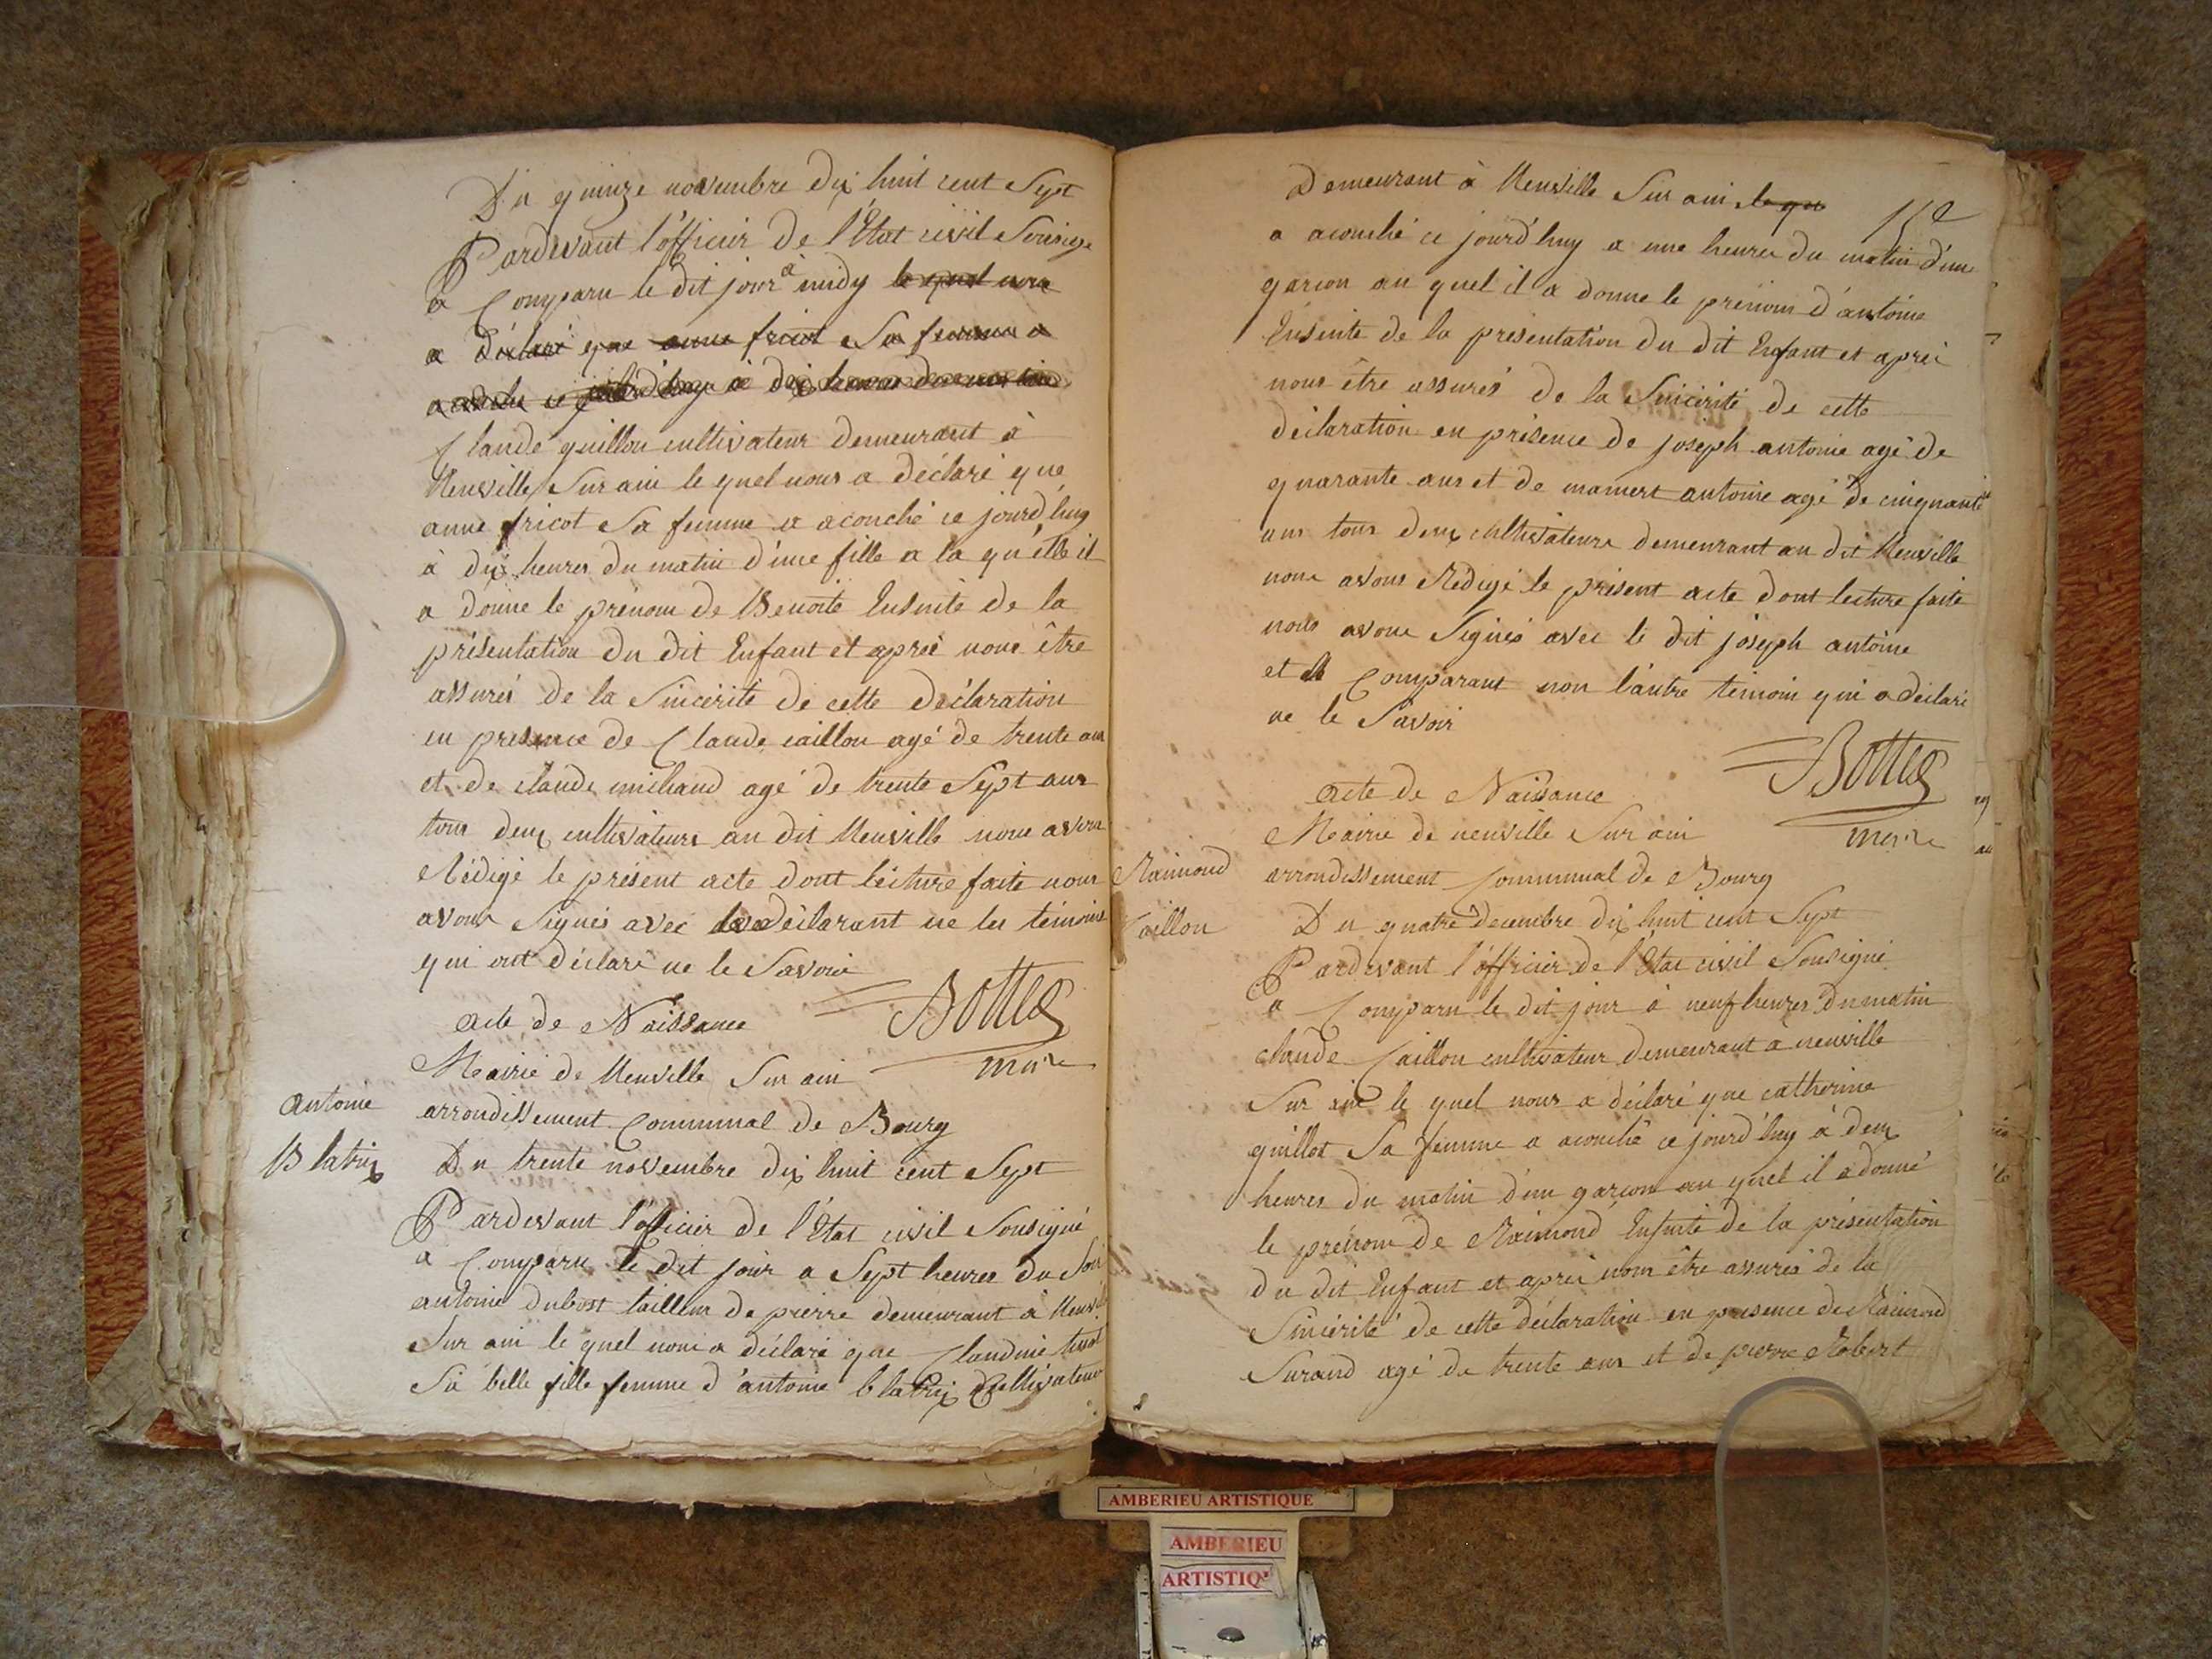 Du quinze novembre dix huit cent Sept
Pardevant l'officier de l'Etat civil Sousigne
a Comparu le dit jour à midy le quel nous
a déclaré que anne fricot Sa femme a
acouché ce jourd'huy à dix heures du matin
Claude guillon cultivateur demeurant à
Neuville Sur ain le quel nous a déclaré que
anne fricot Sa femme a acouché ce jourd'huy
à dix heures du matin d'une fille a la qu'elle il
a donné le prénom de Benoite Ensuite de la
présentation du dit Enfant et après nous être
assurés de la Sincérité de cette déclaration
en presence de Claude caillon agé de trente ans
et de claude michaud agé de trente Sept ans
tous deux cultivateurs au dit Neuville nous avons
Rédigé le présent acte dont lécture faite nous
avons Signés avec le déclarant ne les témoins
qui ont déclaré ne le Savoir
Bottex
maire
acte de Naissance
Mairie de Neuville Sur ain
antoine
Blatrix
arrondissement Communal de Bourg
Du trente novembre dix huit cent Sept
Pardevant l'officier de l'Etat civil Sousigné
a Comparu le dit jour a Sept heures du Soir
antoine dubost tailleur de pierre demeurant à
Sur ain le quel nous a déclaré que Claudine
Sa belle fille femme d'antoine blatrix Cultivateur
15e
Demeurant à Neuville Sur ain le qu
a acouché ce jourd'huy a une heures du matin d'un
garcon au quel il a donne le prénom d'antoine
Ensuite de la présentation du dit Enfant et après
nous être assurés de la Sincérité de cette
déclaration en présence de joseph antoine agé de
quarante ans et de mamert antoine agé de cinquante
ans tous deux cultivateurs demeurant au dit Neuville
nous avons Rédigé le présent acte dont lecture faite
nous avons Signés avec le dit joseph antoine
et le Comparant non l'autre témoin qui a déclaré
ne le Savoir
Bottex
maire
acte de Naissance
Mairie de neuville Sur ain
Raimond
Caillon
arrondissement Communal de Bourg
Du quatre decembre dix huit cent Sept
Pardevant l'officier de l'Etat civil Sousigné
a Comparu le dit jour à neuf heures du matin
claude Caillon cultivateur demeurant a neuville
Sur ain le quel nous a déclaré que catherine
guillot Sa femme a acouché ce jourd'huy à deux
heures du matin d'un garcon au quel il a donné
le prénom de Raimond Ensuite de la présentation
du dit Enfant et après nous être assurés de la
Sincérité de cette déclaration en presence de Raimond
Surand agé de trente ans et de pierre Robert
AMBERIEU ARTISTIQUE
AMBERIEU
ARTISTIQ